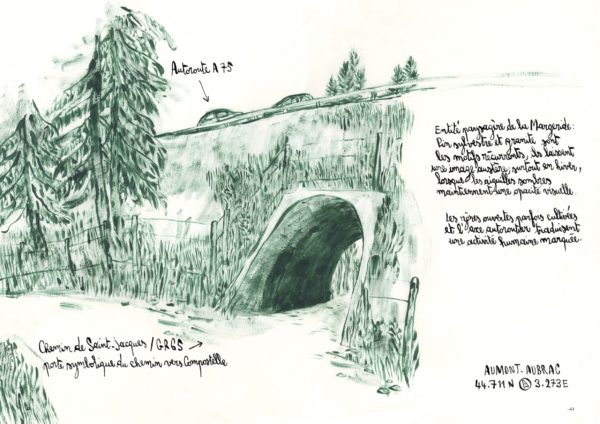 Autoroute A75
Entité paysagère de la Margeride:
Pin sylvestre et granite sont
les motifs récurrents, ils laissent
une image austère, surtout en hiver,
lorsque les aiguilles sombres
maintiennent une opacité visuelle.
Les rives ouvertes parfois cultivées
et l'axe autoroutier traduisent
une activité humaine marquée.
Chemin de Saint-Jacques / GR65
porte symbolique du chemin vers Compostelle
AUMONT-AUBRAC
44.711 N 3.273 E